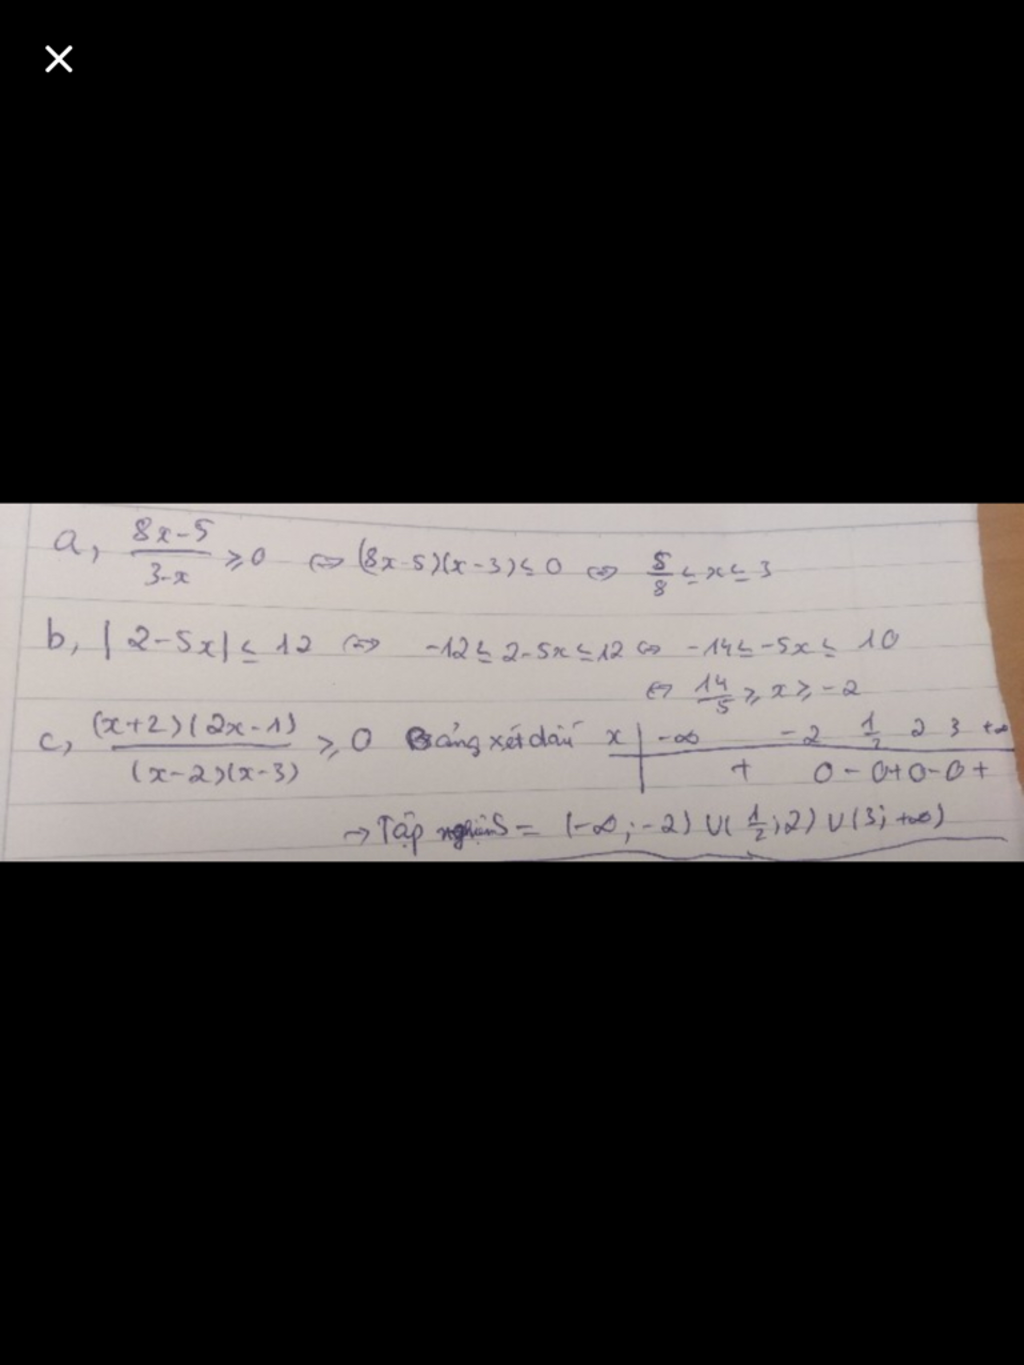 a, (8x-5)/(3-x) ⩾ 0 ⇔ (8x-5)(x-3) ≤ 0 ⇔ 5/8 ≤ x ≤ 3
b, |2-5x| ≤ 12 ⇔ -12 ≤ 2-5x ≤ 12 ⇔ -14 ≤ -5x ≤ 10
⇔ 14/5 ⩾ x ⩾ -2
c, (x+2)(2x-1)/(x-2)(x-3) ⩾ 0 Bảng xét dấu x | -∞ -2 1/2 2 3 +∞
+ 0 - 0 + 0 - 0 +
→ Tập nghiệm S = (-∞; -2) ∪ (1/2; 2) ∪ (3; +∞)